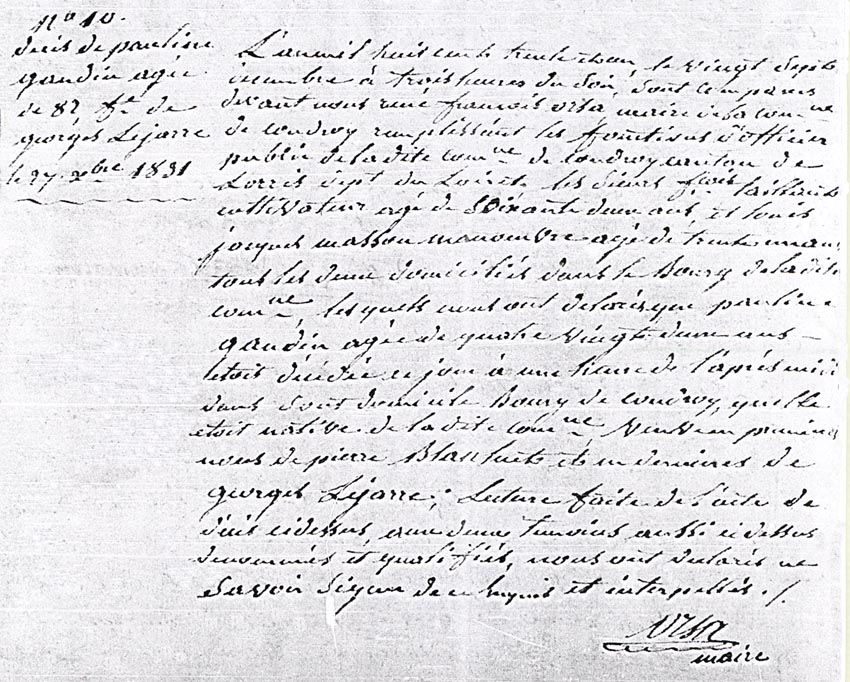 n° 10.
décis de pauline
gaudin agée
de 82 f.e de
georges Lejarre
le 27 xbre 1831
L'an mil huit cents trente et un, le vingt sept
decembre à trois heures du soir, sont comparus
devant nous rené françois Ursa maire de la com.ne
de Coudroy remplissent les fonctions d'officier
public de la dite com.ne de Coudroy canton de
Lorris dept du Loiret les sieurs f.ois
cultivateur agé de Soixante deux ans, et louis
jacques masson manoeuvre agé de trente
tous les deux domiciliés dans le Bourg de la dite
com.ne, les quels nous ont declarés que pauline
gaudin agée de quatre vingt deux ans
étoit décédée ce jour à une heure de l'après midi
dans sont domicile Bourg de Coudroy, quelle
étoit native de la dite com.ne veuve en premiere
nous de pierre et en dernieres de
georges Lejarre; Lecture faite de l'acte de
décis cidessus, aux deux temoins aussi cidessus
denommés et qualifiés, nous ont declarés ne
Savoir Signer de ce requis et interpellés ./.
Ursa
maire